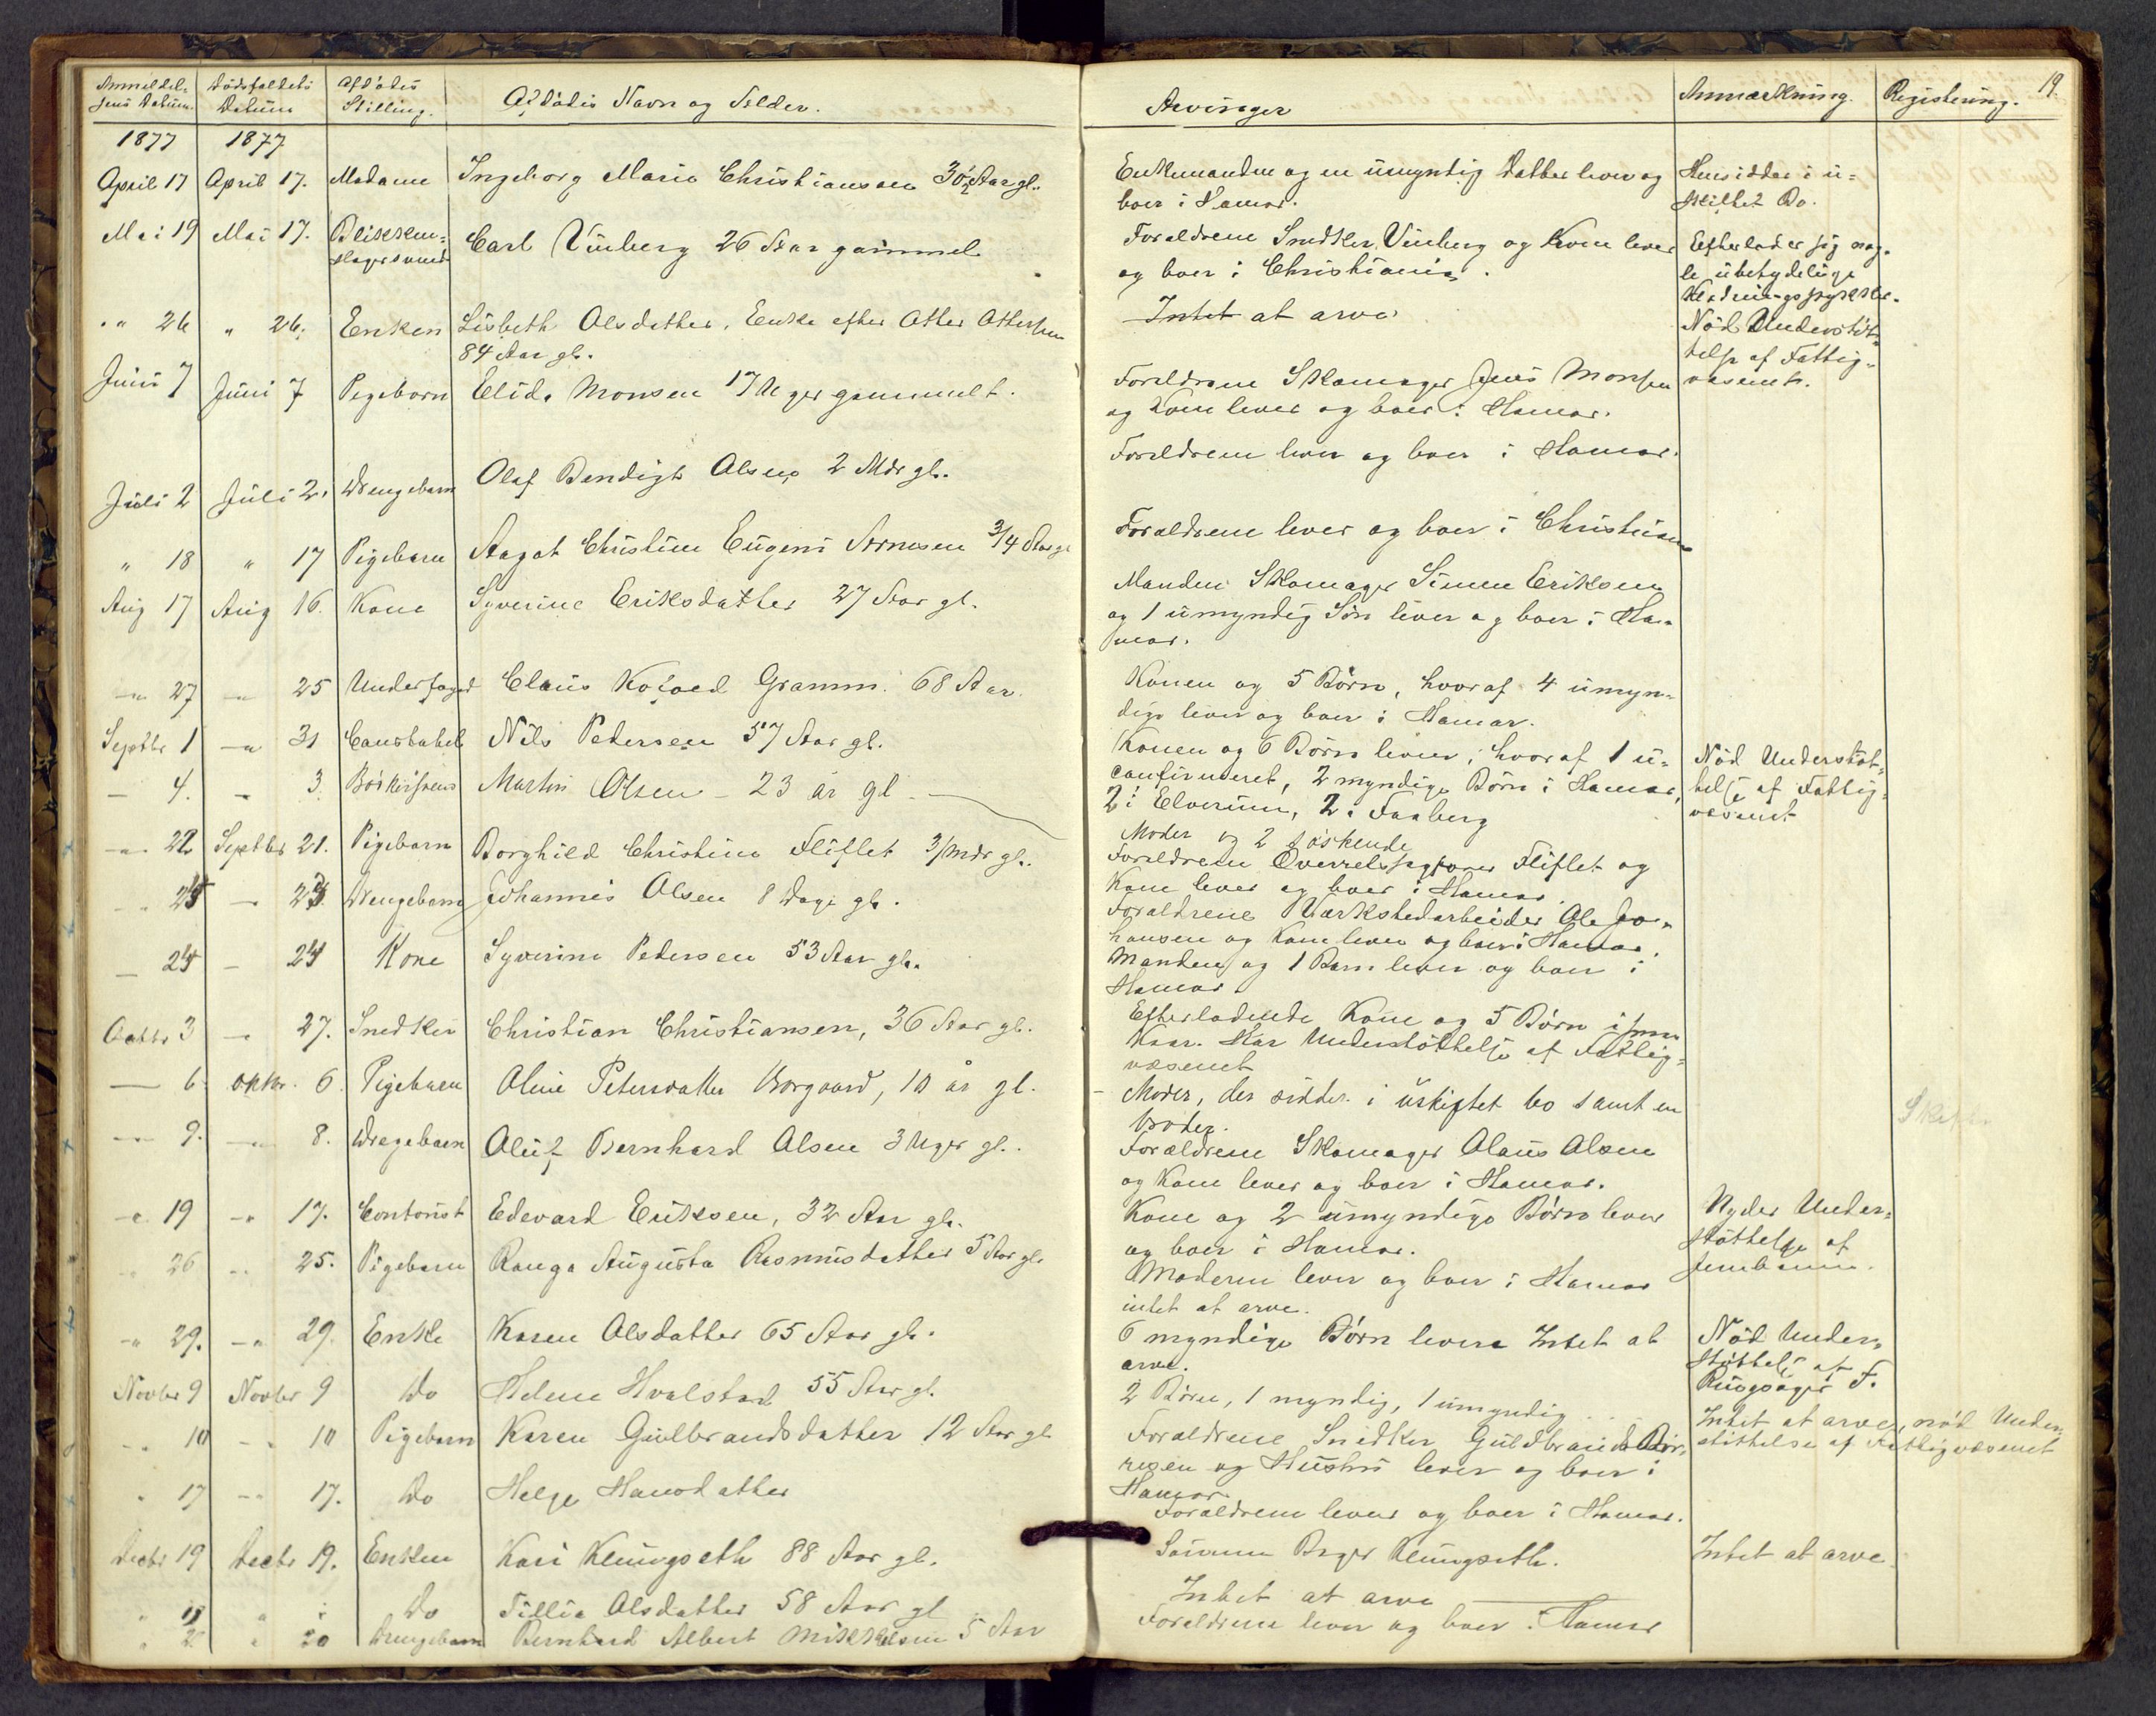 19.
Anmeldel- Dödsfaldets Afdödes Afdödes Navn og Alder.
sens Datum. Datum Stilling.
1877 1877
April 17 April 17. Madame Ingeborg Marie Christiansen 30½ Aar gl.
Mai 19 Mai 17. Blikken- Carl Vinberg 26 Aar gammel
slagersvend
" 26 " 26. Enken Lisbeth Olsdatter, Enke efter Otter Ottersen
84 Aar gl.
Juni 7 Juni 7 Pigebarn Elida Monsen 17 Uger gammelt.
Juli 2 Juli 2. Drengebarn Olaf Bendigt Olsen 2 Mdr gl.
" 18 " 17 Pigebarn Aagot Christine Eugeni Arnesen 3/4 Aar gl
Aug 17 Aug 16. Kone Syverine Eriksdatter 27 Aar gl.
-" 27 -" 25 Underfoged Claus Kofoed Gramm. 68 Aar.
Septbr 1 -" 31 Constabel Nils Pedersen 57 Aar gl.
- 4. - 3. Martin Olsen - 23 år gl -
-" 22 Septbr 21. Pigebarn Borghild Christine Fliflet 3/ Mdr gl.
-" 25 -" 23. Drengebarn Johannes Olsen 8 Dage gl.
- 25 - 24 Kone Syverine Pedersen 53 Aar gl.
Octbr 3 - 27. Snedker Christian Christiansen, 36 Aar gl.
- 6. oktbr. 6. Pigebarn Oline Petersdatter Borgaard, 10 år gl.
-" 9. -" 8. Drengebarn Oluf Bernhard Olsen 3 Uger gl.
-" 19 -" 17. Contorist Edevard Eriksen, 32 Aar gl.
" 26 -" 25. Pigebarn Ranga Augusta Rasmusdatter 5 Aar gl.
-" 29. -" 29. Enke Karen Olsdatter 65 Aar gl.
Novbr 9 Novbr 9 Do Helene Hvalstad 55 Aar gl.
-" 10 -" 10 Pigebarn Karen Gulbrandsdatter 12 Aar gl
" 17 -" 17. Do Helge Hansdatter
Decbr 19 Decbr 19. Enken Kari Klungseth 88 Aar gl.
" " Do Tillia Olsdatter 58 Aar gl
" " 20 Drengebarn Bernhard Albert Mikkelsen 5 Aar
Arvinger Anmærkning. Registrering.
Enkemanden og en umyndig Datter lever og Hensidder i u-
boer i Hamar. skiftet Bo.
Forældrene Snedker Vinberg og Kone lever Efterlader sig nog-
og boer i Christiania. le ubetydelige
Klædningsstykker.
Intet at arve Nød Understöt-
telse af Fattig-
Forældrene Skomager Jens Monsen væsenet.
og Kone lever og boer i Hamar.
Forældrene lever og boer i Hamar.
Forældrene lever og boer i Christiania
Manden Skomager Simen Eriksen
og 1 umyndig Sön lever og boer i Ha-
mar.
Konen og 5 Börn, hvoraf 4 umyn-
dige lever og boer i Hamar.
Konen og 6 Börn lever, hvoraf 1 u- Nød Understöt-
confirmeret, 2 myndige Börn i Hamar, telse af Fattig-
2 i Elverum, 2 i Faaberg væsenet
Moder og 2 söskende
Forældrene Overretssagförer Fliflet og
Kone lever og boer i Hamar.
Forældrene Værkstedarbeider Ole Jo-
hansen og Kone lever og boer i Hamar.
Manden og 1 Barn lever og boer i
Hamar
Efterladende Kone og 5 Börn i smaa
Kaar. Har Understöttelse af Fattig-
væsenet
- Moder, der sidder i uskiftet bo samt en
broder.
Forældrene Skomager Olaus Olsen
og Kone lever og boer i Hamar.
Kone og 2 umyndige Börn lever Nyder Under-
og boer i Hamar. støttelse af
Moderen lever og boer i Hamar Jernbanen.
intet at arve.
6 myndige Börn levere Intet at Nød Under-
arve. støttelse af
Ringsager F.
2 Börn, 1 myndig, 1 umyndig Intet at arve, nød Under-
Forældrene Snedker Guldbrand Bör- støttelse af Fattigvæsenet
resen og Hustru lever og boer i
Hamar.
Forældrene lever og boer i Hamar.
Sönnen Birger Klungseth. Intet at arve
Intet at arve
Forældrene lever og boer i Hamar